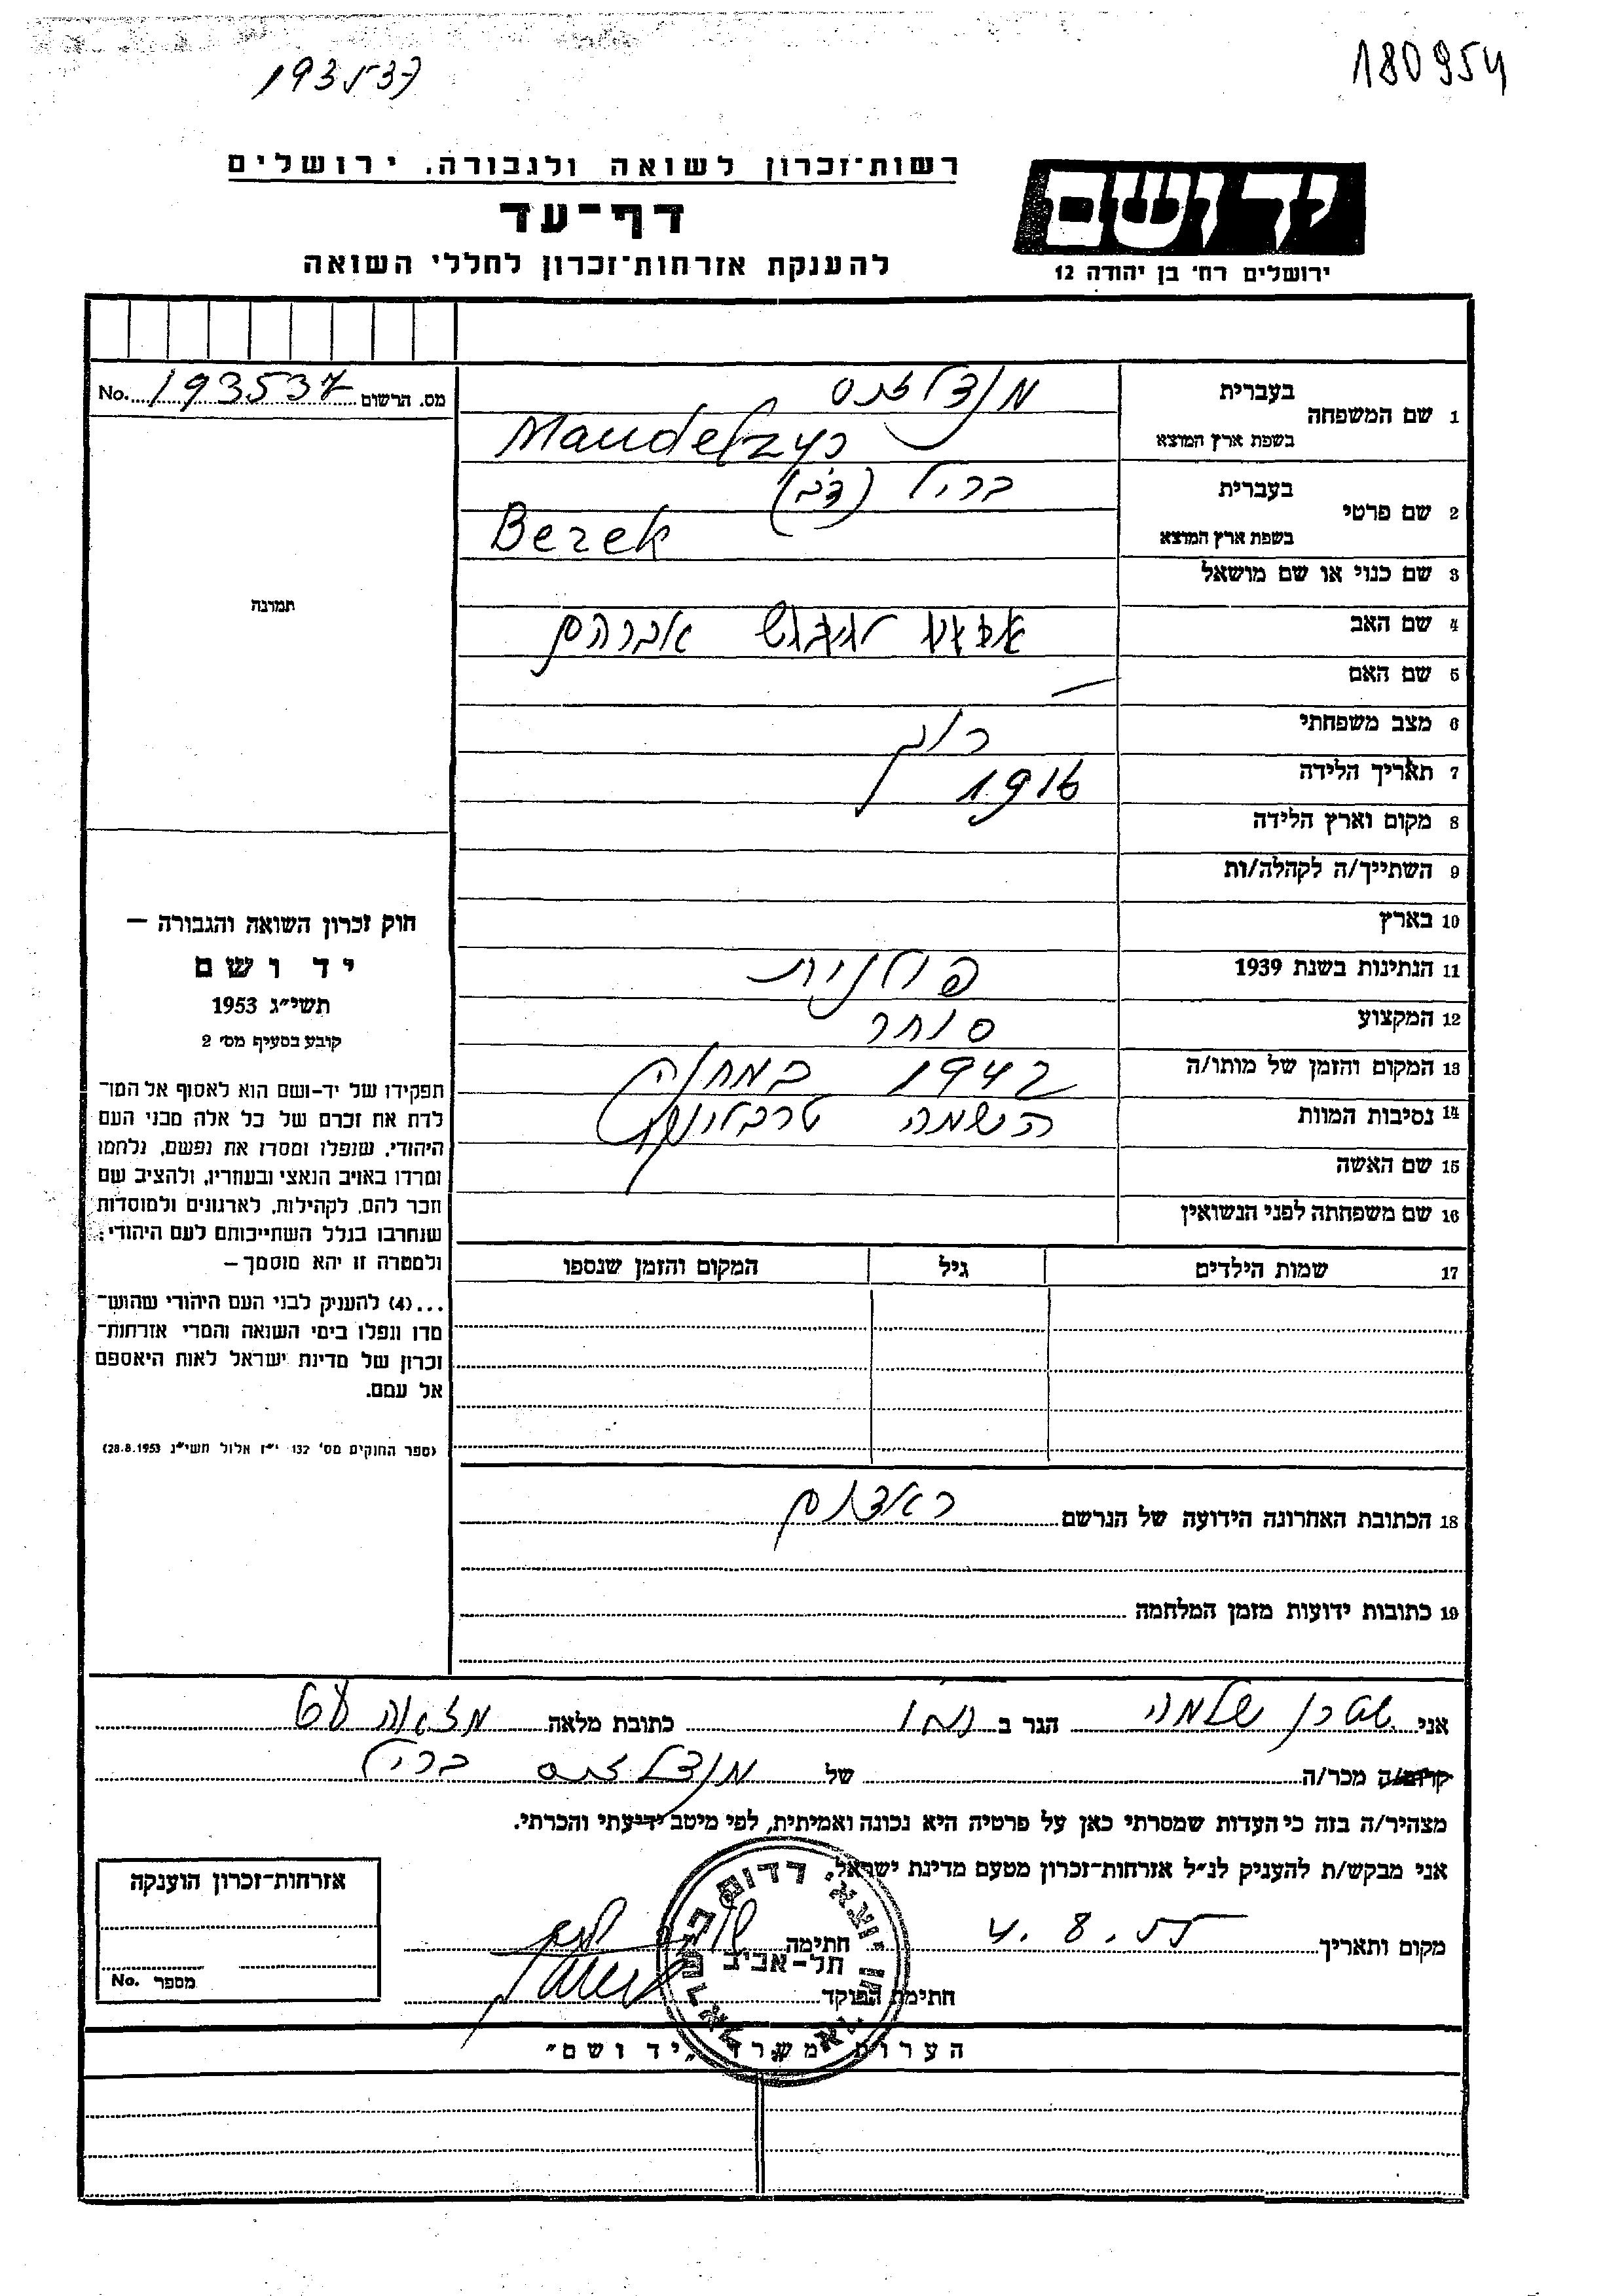 193537
180954
רשות־זכרון לשואה ולגבורה. ירושלים
יד ושם
דף־עד
להענקת אזרחות־זכרון לחללי השואה
ירושלים רח׳ בן יהודה 12
מס. הרשום 193537 No.
1 שם המשפחה בעברית
בשפת ארץ המוצא Mandelzys
2 שם פרטי בעברית בריל (דב)
בשפת ארץ המוצא Berek
3 שם כנוי או שם מושאל
4 שם האב אברהם
5 שם האם —
6 מצב משפחתי רוק
7 תאריך הלידה 1916
8 מקום וארץ הלידה
9 השתייך/ה לקהלה/ות
10 בארץ
11 הנתינות בשנת 1939 פולנית
12 המקצוע סוחר
13 המקום והזמן של מותו/ה 1942 במחנה
14 נסיבות המוות השמדה טרבלינקה
15 שם האשה
16 שם משפחתה לפני הנשואין
17 שמות הילדים גיל המקום והזמן שנספו
18 הכתובת האחרונה הידועה של הנרשם ראדום
19 כתובות ידועות מזמן המלחמה
תמונה
חוק זכרון השואה והגבורה —
יד ושם
תשי״ג 1953
קובע בסעיף מס׳ 2
תפקידו של יד־ושם הוא לאסוף אל המו־
לדת את זכרם של כל אלה מבני העם
היהודי, שנפלו ומסרו את נפשם, נלחמו
ומרדו באויב הנאצי ובעוזריו, ולהציב שם
וזכר להם, לקהילות, לארגונים ולמוסדות
שנחרבו בגלל השתייכותם לעם היהודי;
ולמטרה זו יהא מוסמך —
...(4) להעניק לבני העם היהודי שהוש־
מדו ונפלו בימי השואה והמרי אזרחות־
זכרון של מדינת ישראל לאות היאספם
אל עמם.
(ספר החוקים מס׳ 132 י״ז אלול תשי״ג 28.8.1953)
אני שלמה הגר ב כתובת מלאה
קרוב/ה מכר/ה של בריל
מצהיר/ה בזה כי העדות שמסרתי כאן על פרטיה היא נכונה ואמיתית, לפי מיטב ידיעתי והכרתי.
אני מבקש/ת להעניק לנ״ל אזרחות־זכרון מטעם מדינת ישראל.
מקום ותאריך 4.8.55 חתימה
חתימת הפוקד
תל-אביב
אזרחות־זכרון הוענקה
מספר No.
הערות משרד ״יד ושם״